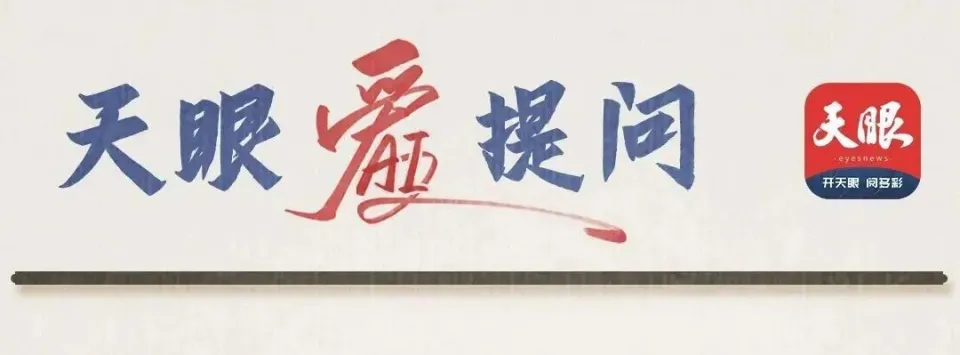 天眼爱AI提问
天眼
·eyesnews·
开天眼 阅多彩